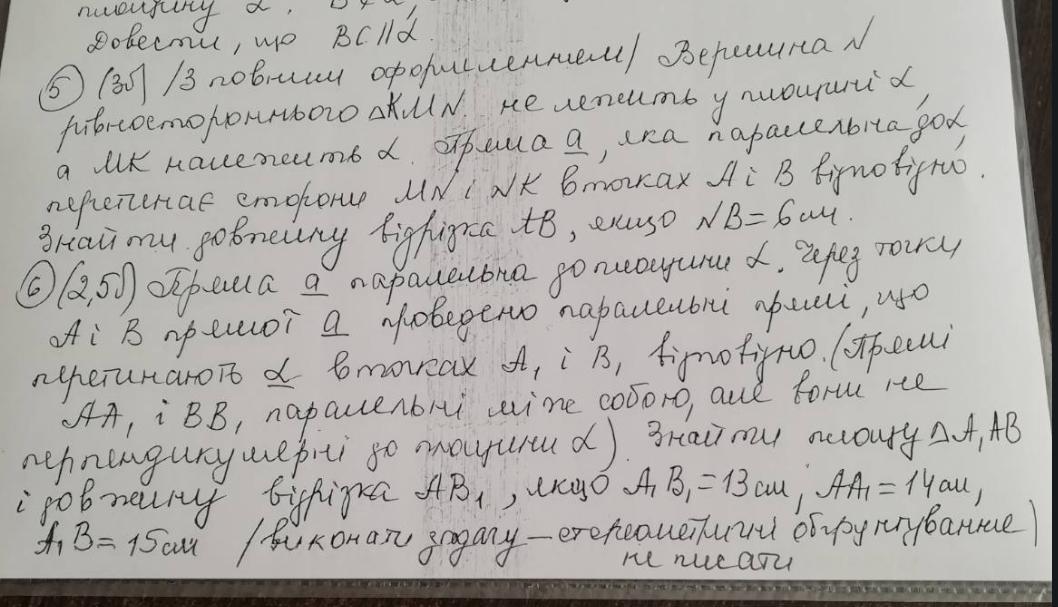 площину α. B ∉ α,
Довести, що BC || α.
5 (3б) /З повним оформленням/ Вершина N
рівностороннього ΔKMN не лежить у площині α,
а MK належить α. Пряма a, яка паралельна до α,
перетинає сторони MN і NK в точках A і B відповідно.
Знайти довжину відрізка AB, якщо NB = 6 см.
6 (2,5б) Пряма a паралельна до площини α. Через точки
A і B прямої a проведено паралельні прямі, що
перетинають α в точках A₁ і B₁ відповідно. (Прямі
AA₁ і BB₁ паралельні між собою, але вони не
перпендикулярні до площини α) Знайти площу ΔA₁AB
і довжину відрізка AB₁, якщо A₁B₁ = 13 см, AA₁ = 14 см,
A₁B = 15 см /виконати задачу – стереометричні обґрунтування)
не писати